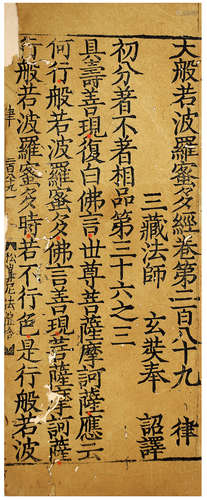 大般若波羅蜜多經卷第二百八十九 律
三藏法師 玄奘奉 詔譯
初分著不著相品第三十六之三
具壽善現復白佛言世尊菩薩摩訶薩應云
何行般若波羅蜜多佛言善現菩薩摩訶薩
行般若波羅蜜多時若不行色是行般若波
律